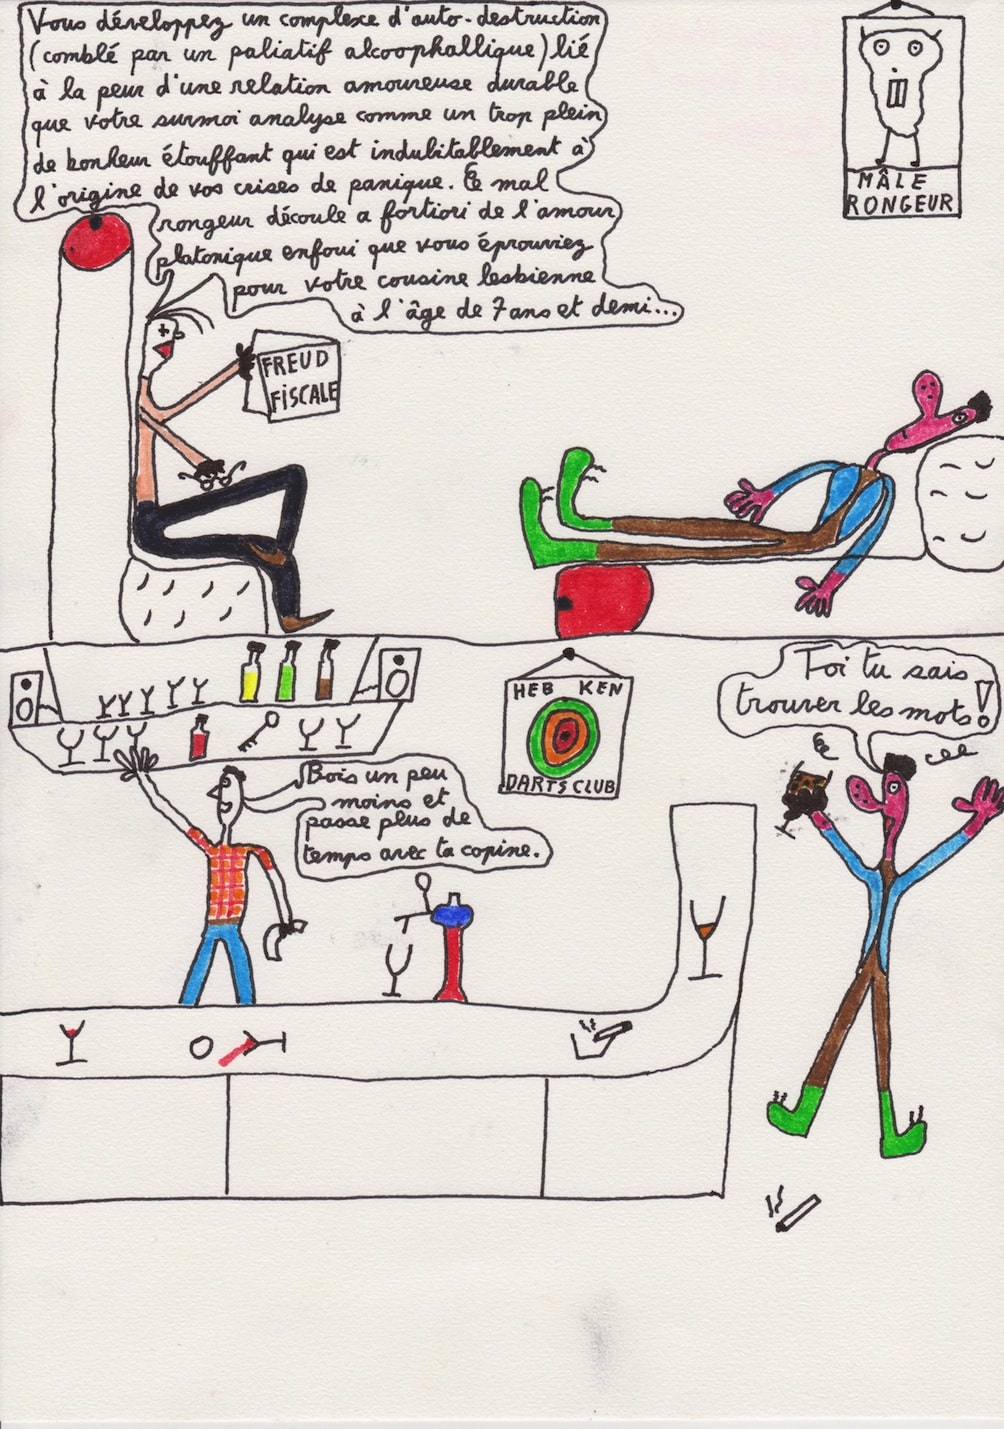 Vous développez un complexe d'auto-destruction
(comblé par un paliatif alcoophallique) lié
à la peur d'une relation amoureuse durable
que votre surmoi analyse comme un trop plein
de bonheur étouffant qui est indubitablement à
l'origine de vos crises de panique. Ce mal
rongeur découle a fortiori de l'amour
platonique enfoui que vous éprouviez
pour votre cousine lesbienne
à l'âge de 7 ans et demi...
MÂLE
RONGEUR
FREUD
FISCALE
HEB KEN
DARTS CLUB
Toi tu sais
trouver les mots!
Bois un peu
moins et
passe plus de
temps avec ta copine.